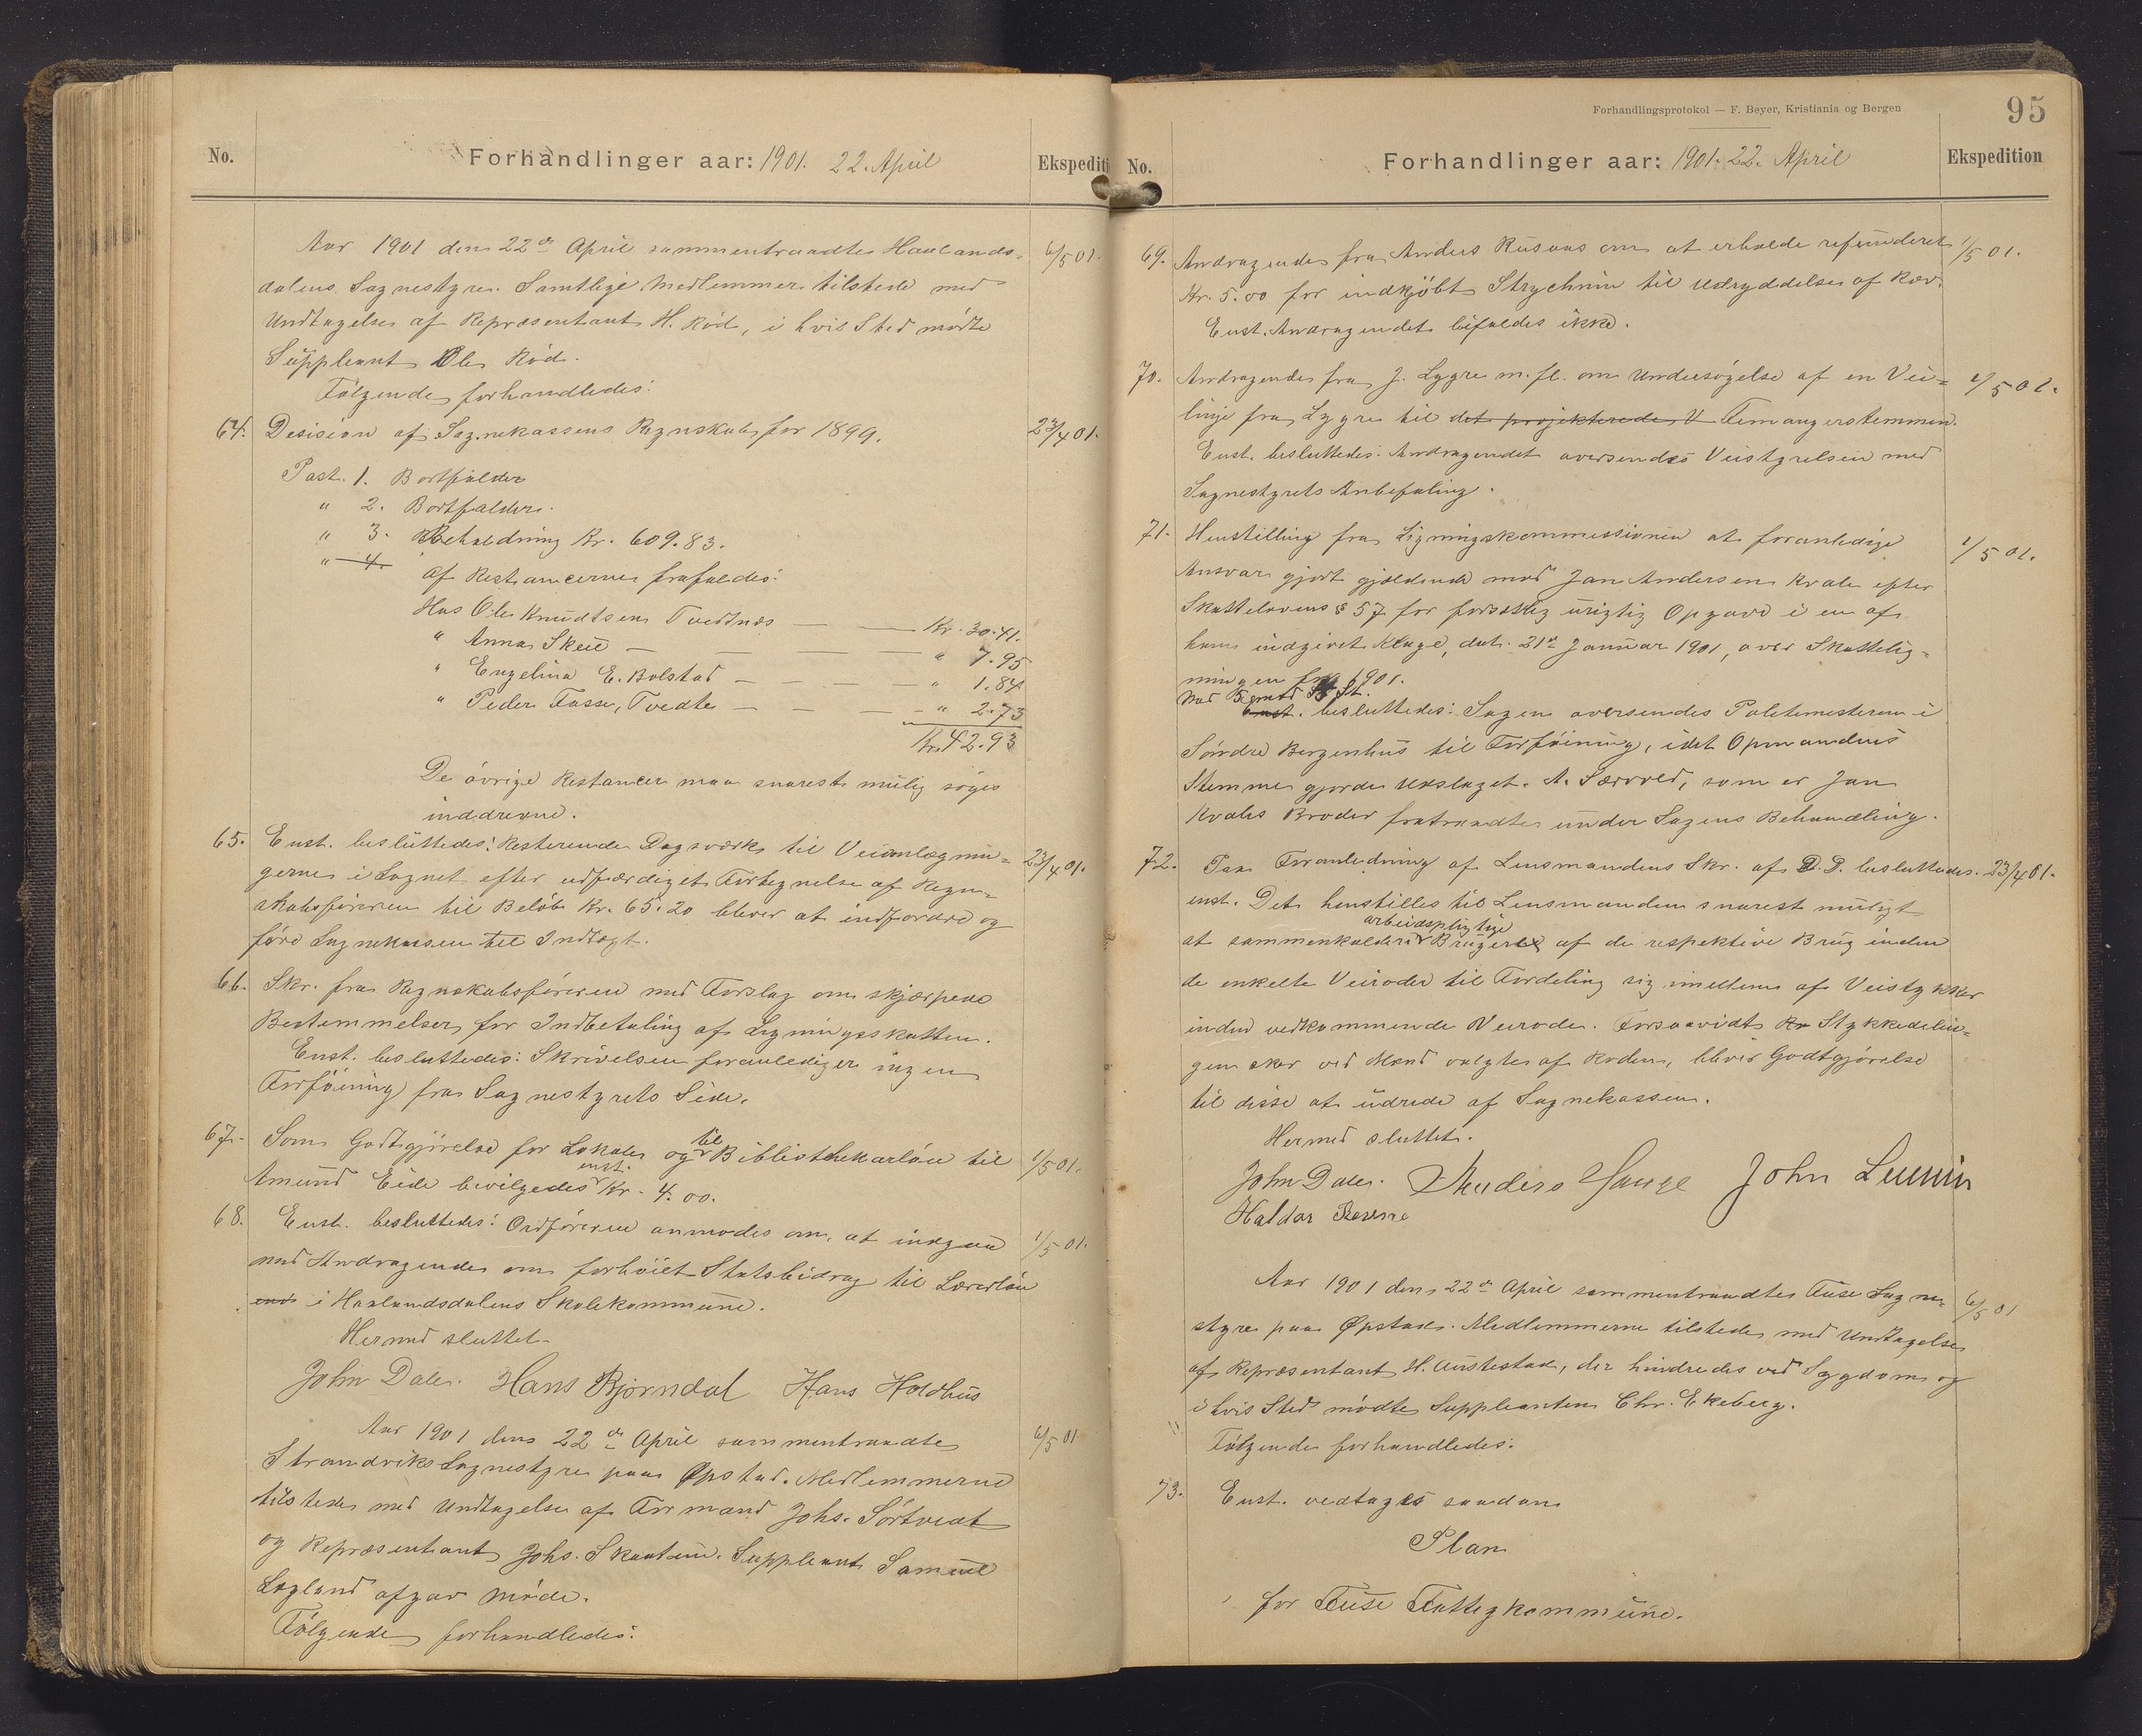 No.
Forhandlinger aar: 1901. 22. April
Ekspediti
Aar 1901 den 22de April sammentraadte Haalands-
dalens Sognestyre. Samtlige Medlemmer tilstede med
Undtagelse af Repræsentant H. Röd, i hvis Sted mödte
Suppleant Ole Röd.
Fölgende forhandledes:
6/5 01.
64. Desision af Sognekassens Regnskab for 1899.
23/4 01.
Post. 1. Bortfalder
" 2. Bortfalder.
" 3. Beholdning Kr. 609.83.
" 4.
Af Restancerne frafaldes:
Hos Ole Knudtsen Tvedtnæs — — Kr. 30.41.
" Anna Skeie — — — " 7.95
" Engelina E. Bolstad — — — — " 1.84
" Peder Fosse, Tvedte — — — — " 2.73
Kr. 42.93
De övrige Restancer maa snarest mulig söges
inddrevne.
65. Enst. besluttedes: Resterende Dagsværk til Veianlægnin-
gerne i Sognet efter udfærdiget Fortegnelse af Regn-
skabsföreren til Belöb Kr. 65.20 bliver at indfordre og
före Sognekassen til Indtægt.
23/4 01.
66. Skr. fra Regnskabsföreren med Forslag om skjærpede
Bestemmelser for Indbetaling af Ligningsskatten.
Enst. besluttedes: Skrivelsen foranlediger ingen
Forföining fra Sognestyrets Side.
67. Som Godtgjörelse for Lokale og til Bibliothekarlön til
Amund Eide bevilgedes enst. Kr. 4.00.
1/5 01.
68. Enst. besluttedes: Ordföreren anmodes om, at indgaa
med Andragende om forhöiet Statsbidrag til Lærerlön
i Haalandsdalens Skolekommune.
1/5 01.
Hermed sluttet.
John Dale. Hans Bjørndal Hans Holdhus
Aar 1901 den 22de April sammentraadte
Strandviks Sognestyre paa Opstad. Medlemmerne
tilstede med Undtagelse af Formand Johs. Sörtveit
og Repræsentant Johs. Skaatun. Suppleant Samuel
Lygland afgav möde.
Fölgende forhandledes:
6/5 01
Forhandlingsprotokol — F. Beyer, Kristiania og Bergen
95
No.
Forhandlinger aar: 1901. 22. April
Ekspedition
69. Andragende fra Anders Rusaas om at erholde refunderet
Kr. 5.00 for indkjöbt Strychnin til Udryddelse af Rov.
Enst. Andragendet bifaldes ikke.
1/5 01.
70. Andragende fra J. Lygre m. fl. om Undersögelse af en Vei-
linje fra Lygre til det projekterede V Femangerstemmen.
Enst. besluttedes: Andragendet oversendes Veistyrelsen med
Sognestyrets Anbefaling.
1/5 01.
71. Henstilling fra Ligningskommissionen at foranledige
Ansvar gjort gjældende mod Jan Andersen Kvale efter
Skattelovens § 57 for forsætlig urigtig Opgave i en af
ham indgivet Klage, dat. 21de Januar 1901, over Skattelig-
ningen for 1901.
1/5 01.
Med 5 mod St.
Enst. besluttedes: Sagen oversendes Politimesteren i
Söndre Bergenhus til Forföining, idet Opmandens
Stemme gjorde Udslaget. A. Særvold, som er Jan
Kvales Broder fratraadte under Sagens Behandling.
72. Paa Foranledning af Lensmandens Skr. af D. D. besluttedes
enst. Det henstilles til Lensmanden snarest muligt
at sammenkalde arbeidspligtige Brugere af de respektive Brug inden
de enkelte Veiroder til Fordeling sig imellem af Veistykker
inden vedkommende Veirode. Forsaavidt Stykkedelin-
gen sker ved Mænd valgte af Roden, bliver Godtgjörelse
til disse at udrede af Sognekassen.
23/4 01.
Hermed sluttet.
John Dale. Anders Hauge John Lunnin
Haldor
Aar 1901 den 22de April sammentraadte Fuse Sogne-
styre paa Opstad. Medlemmerne tilstede med Undtagelse
af Repræsentant H. Austestad, der hindredes ved Sygdom og
i hvis Sted mödte Suppleanten Chr. Ekeberg.
Fölgende forhandledes:
6/5 01
73. Enst. vedtages saadan
Plan
for Fuse Fattigkommune.